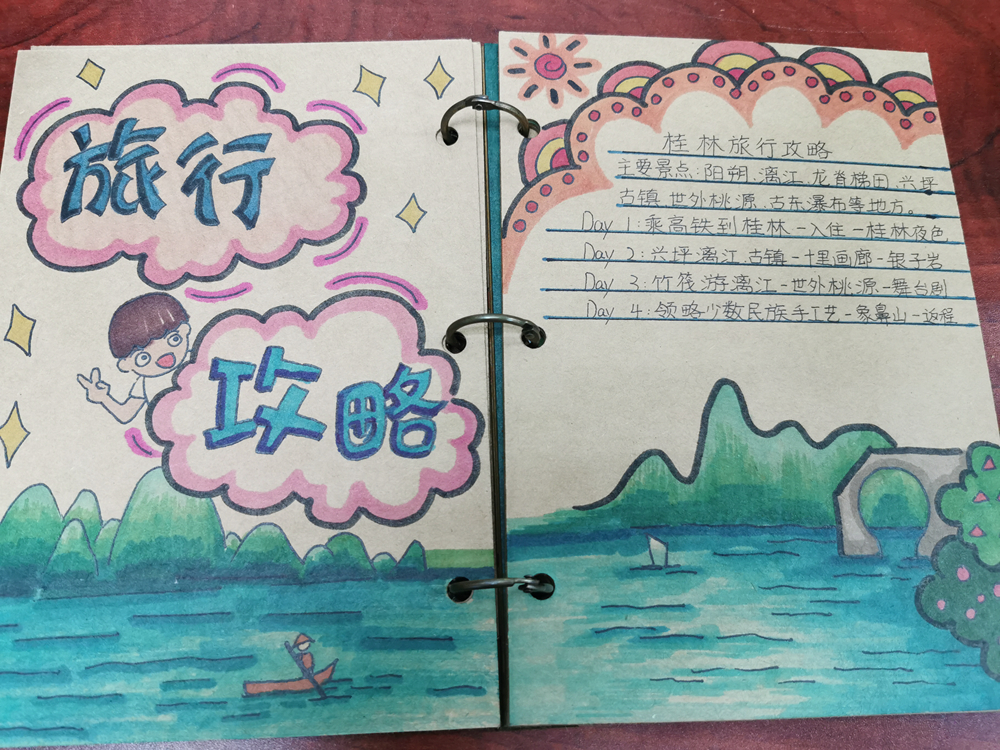 旅行
攻略
桂林旅行攻略
主要景点:阳朔、漓江、龙脊梯田、兴坪
古镇、世外桃源、古东瀑布等地方。
Day 1:乘高铁到桂林-入住-桂林夜色
Day 2:兴坪漓江、古镇-十里画廊-银子岩
Day 3:竹筏游漓江-世外桃源-舞台剧
Day 4:领略少数民族手工艺-象鼻山-返程